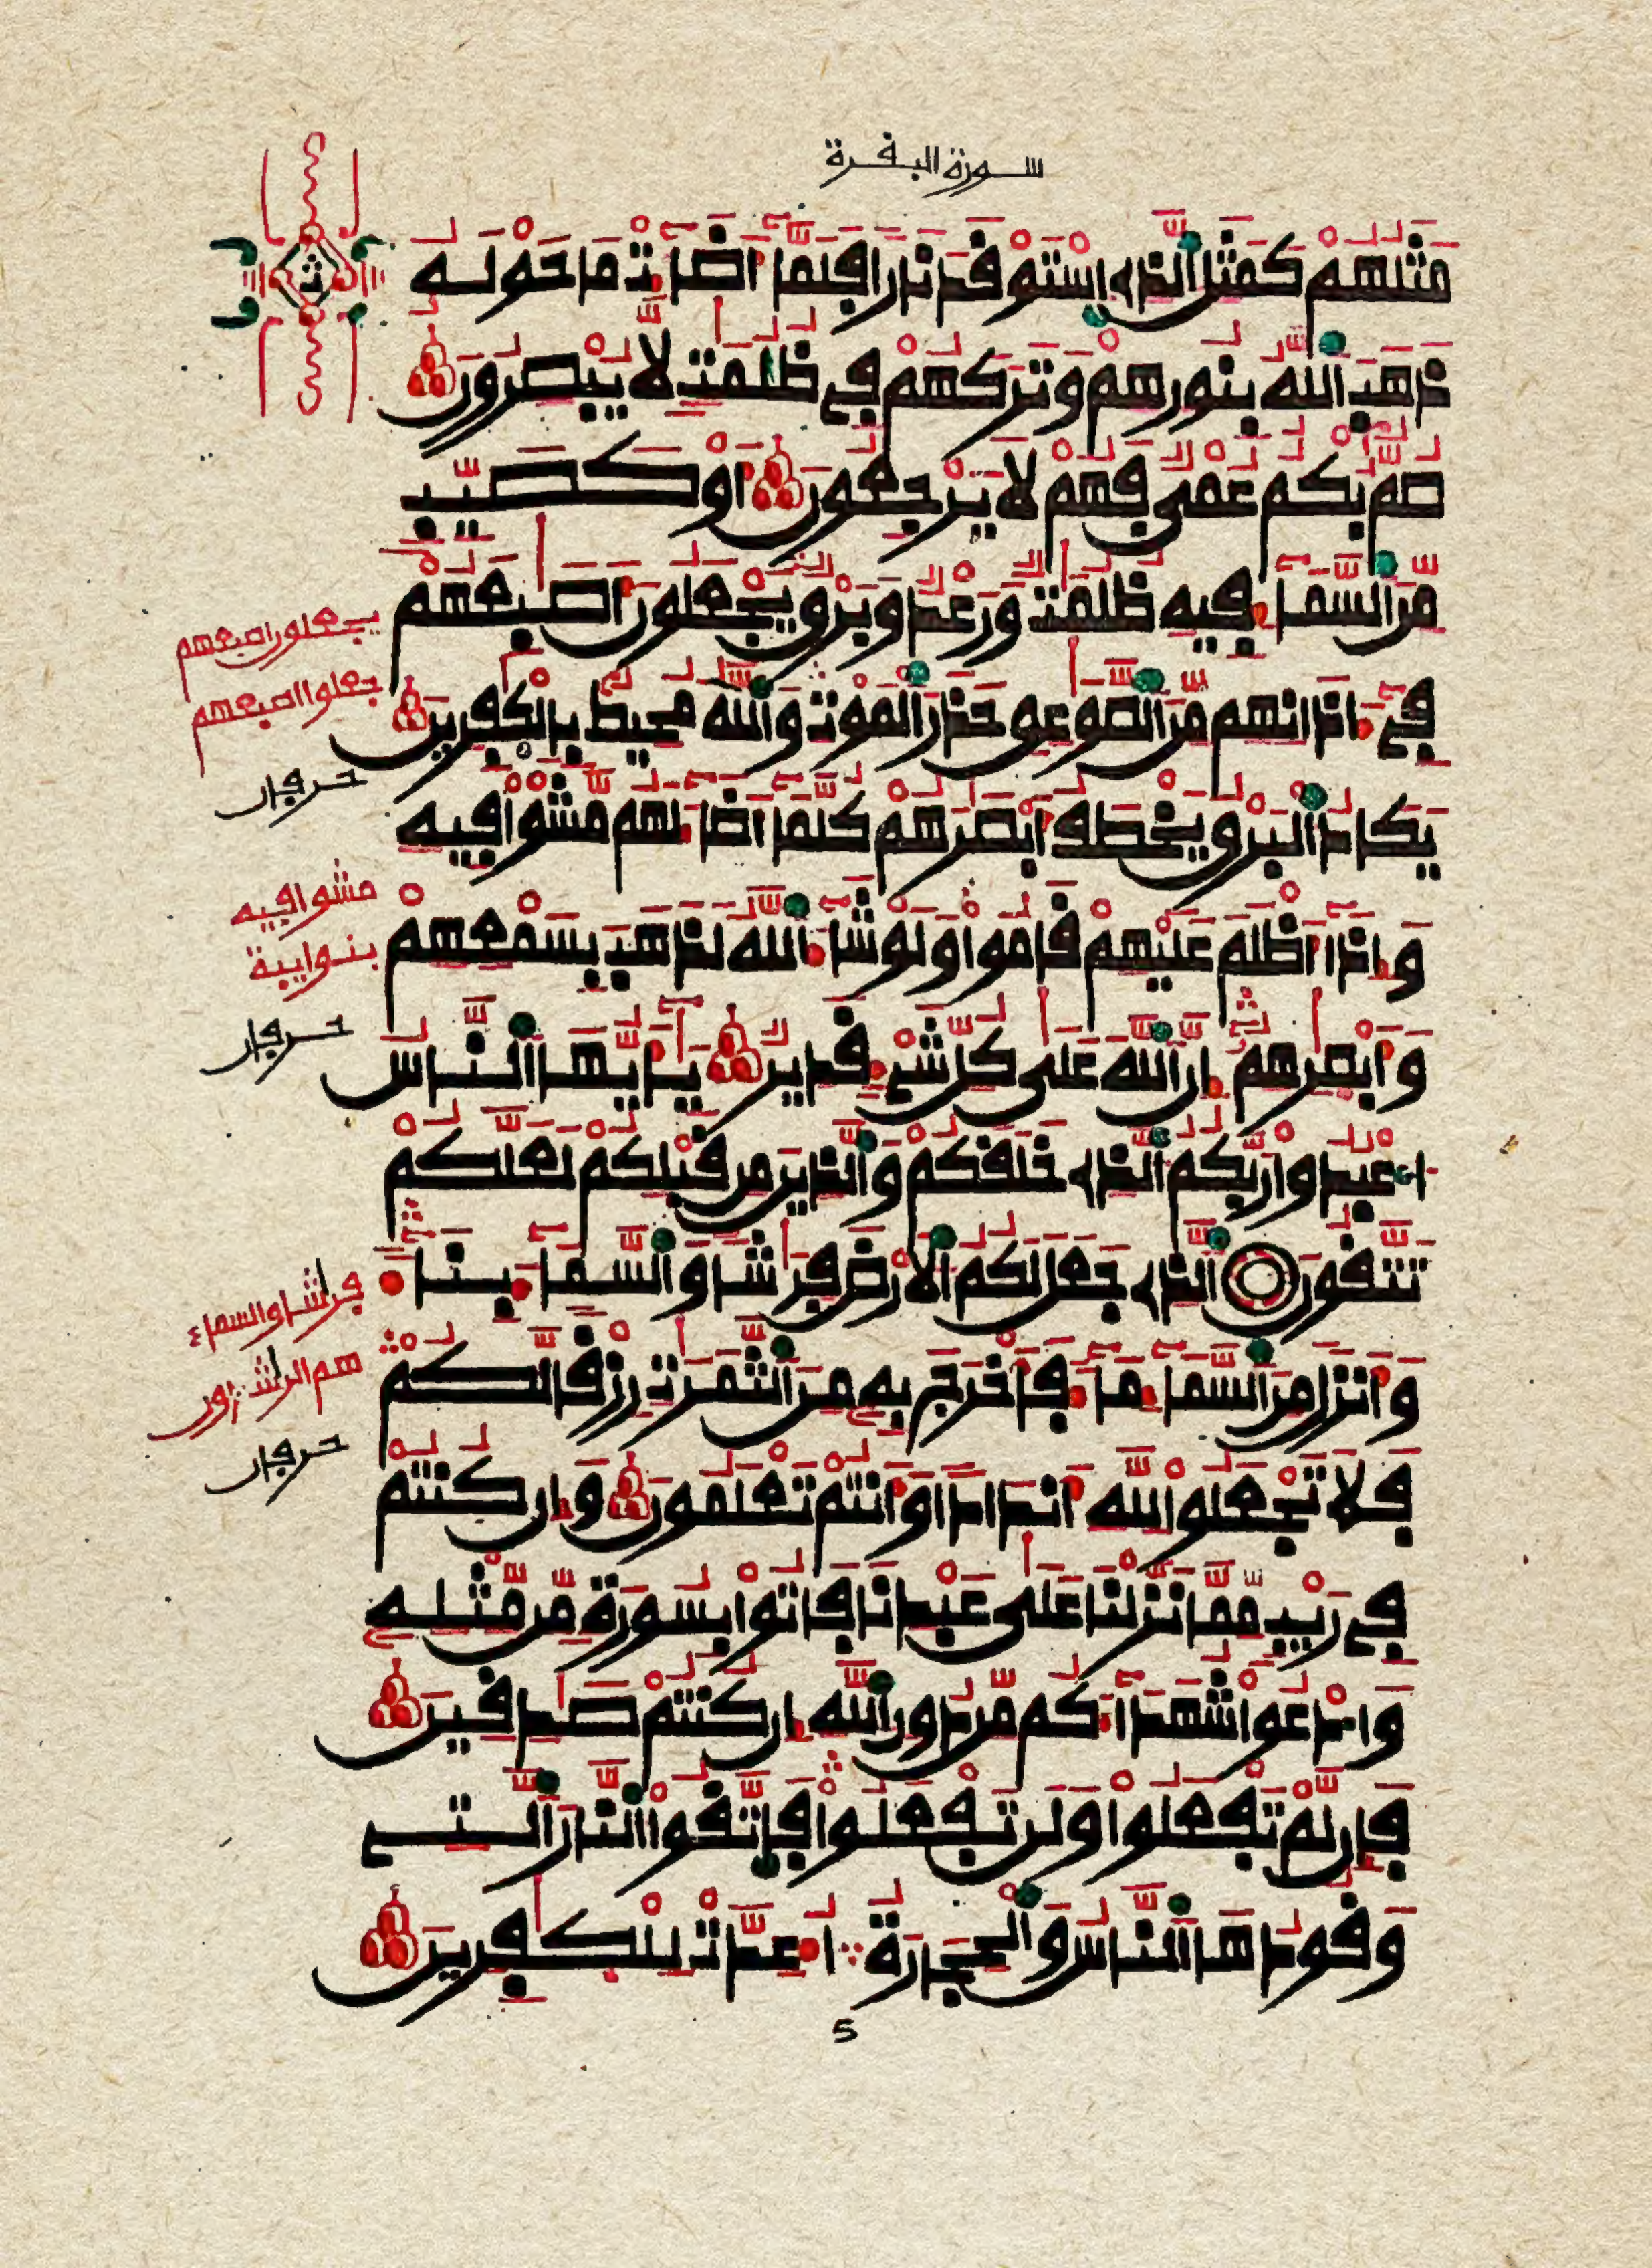 سورة البقرة
ث
مثلهم كمثل الذي استوقد نارا فلما أضاءت ما حوله
ذهب الله بنورهم وتركهم في ظلمت لا يبصرون
صم بكم عمي فهم لا يرجعون او كصيب
من السماء فيه ظلمت ورعد وبرق يجعلون أصبعهم
في ءاذانهم من الصوعق حذر الموت والله محيط بالكفرين
يكاد البرق يخطف أبصرهم كلما أضاء لهم مشوا فيه
وإذا أظلم عليهم قاموا ولو شاء الله لذهب بسمعهم
وأبصرهم إن الله على كل شيء قدير يأيها الناس
اعبدوا ربكم الذي خلقكم والذين من قبلكم لعلكم
تتقون الذي جعل لكم الأرض فرشا والسماء بناء
وأنزل من السماء ماء فأخرج به من الثمرت رزقا لكم
فلا تجعلوا لله أندادا وأنتم تعلمون وإن كنتم
في ريب مما نزلنا على عبدنا فاتوا بسورة من مثله
وادعوا شهداءكم من دون الله إن كنتم صدقين
فإن لم تفعلوا ولن تفعلوا فاتقوا النار التي
وقودها الناس والحجارة أعدت للكفرين
يجعلون اصبعهم
جعلوا اصبعهم
حرفان
مشوا فيه
بنوا ريبة
حرفان
فرشا والسماء
هم الرشدون
حرفان
5